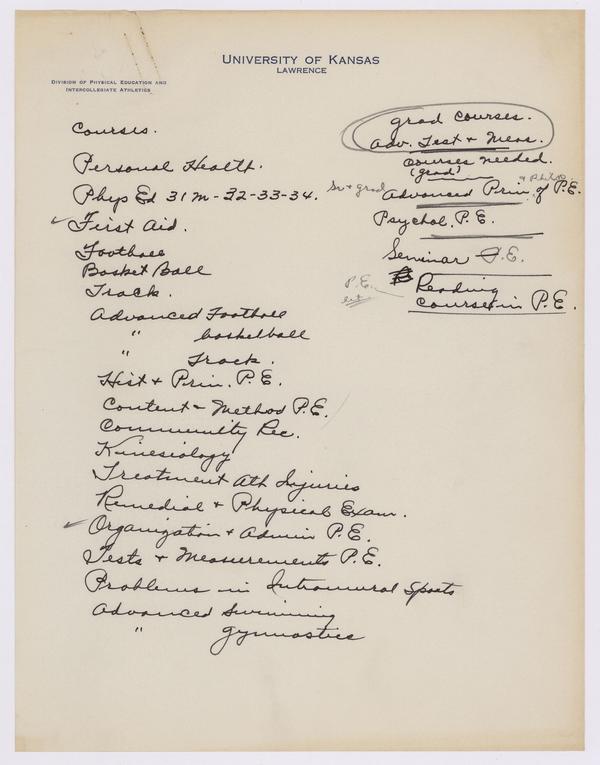 UNIVERSITY OF KANSAS
LAWRENCE
DIVISION OF PHYSICAL EDUCATION AND
INTERCOLLEGIATE ATHLETICS
Courses.
Personal Health.
Phys Ed 31 M - 32 - 33 - 34.
✓ First Aid.
Football
Basket Ball
Track.
Advanced Football
" basketball
" Track.
Hist + Prin. P.E.
Content + Method P.E.
Community Rec.
Kinesiology
Treatment Ath Injuries
Remedial + Physical Exam.
✓ Organization + Admin P.E.
Tests + Measurements P.E.
Problems in Intramural Sports
Advanced Swimming
" gymnastics
grad courses.
Adv. Test + Meas.
courses needed.
(grad)
+ Philos.
Sr + grad Advanced Prin. of P.E.
Psychol. P.E.
Seminar P.E.
P.E. Reading
lit courses in P.E.